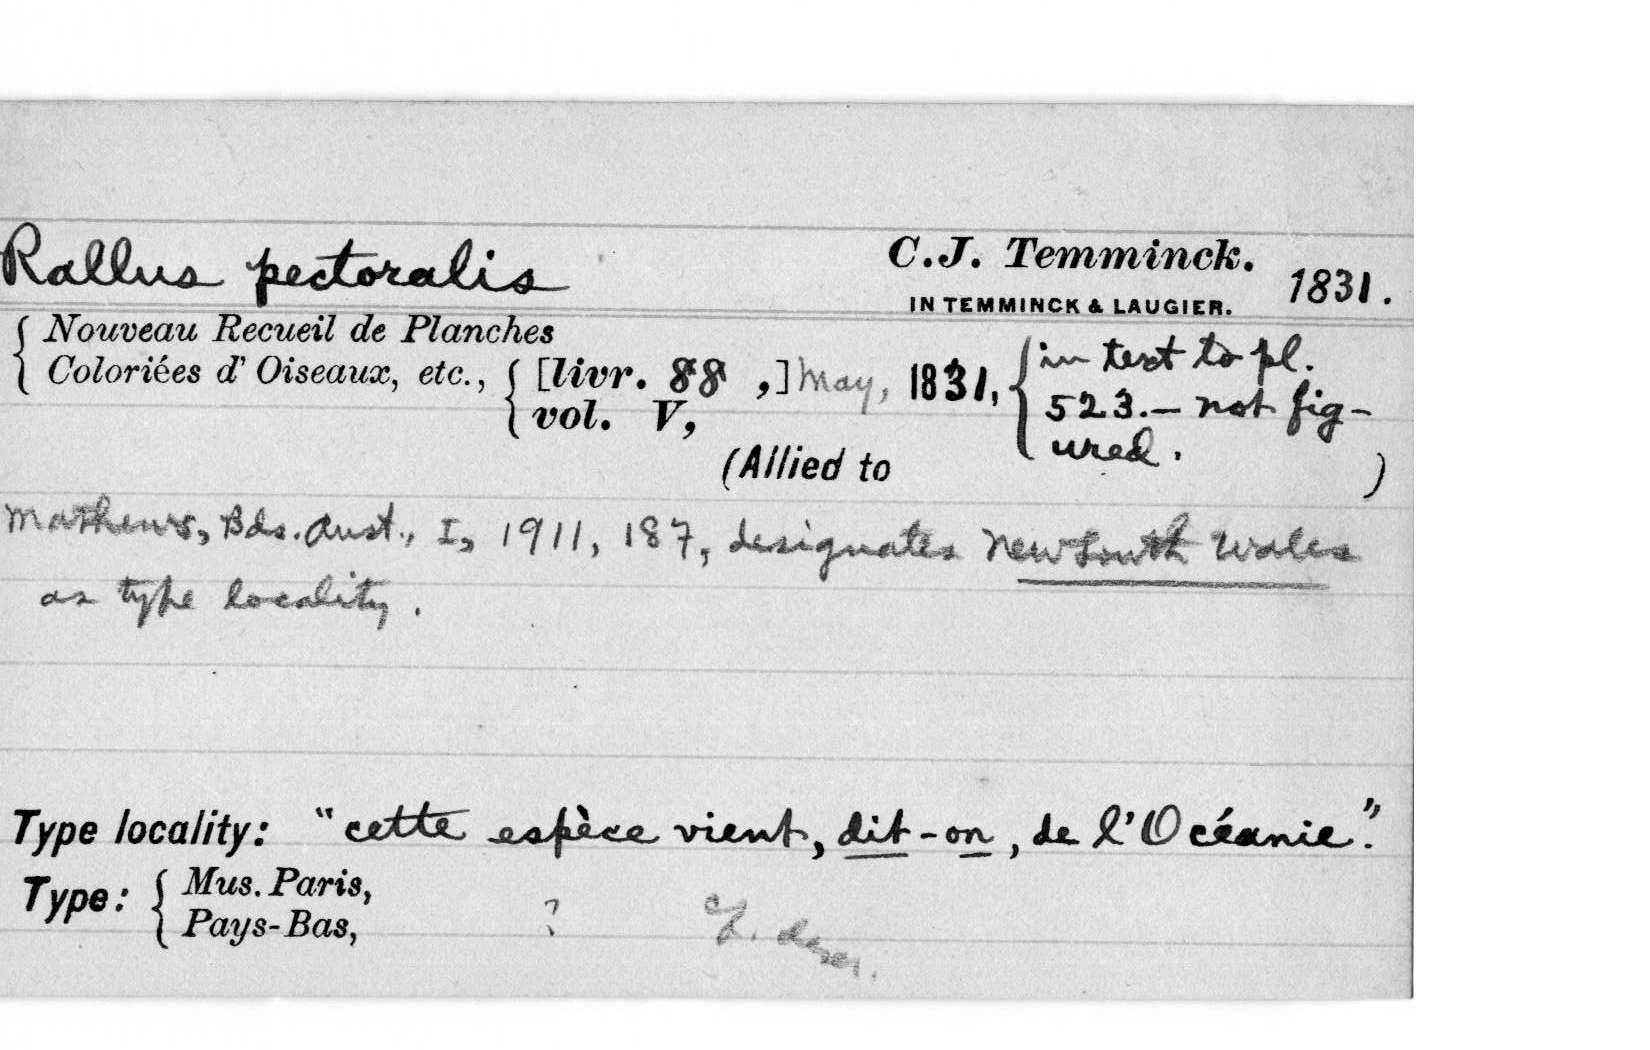 Rallus pectoralis C.J. Temminck. 1831.
IN TEMMINCK & LAUGIER.
{ Nouveau Recueil de Planches
Coloriées d' Oiseaux, etc., { [livr. 88 ,] May, 1831, { in text to pl.
vol. V, 523.— not fig-
ured.
(Allied to )
Mathews, Bds. Aust., I, 1911, 187, designates New South Wales
as type locality.
Type locality: "cette espèce vient, dit-on, de l'Océanie".
Type: { Mus. Paris,
Pays-Bas, ?